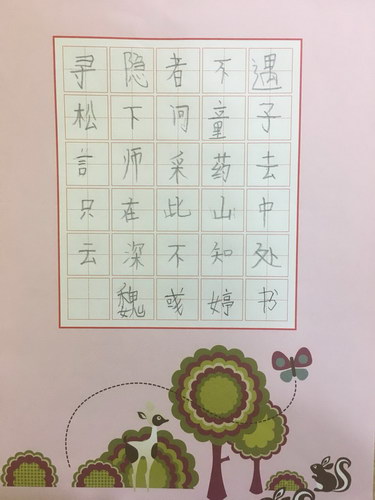 寻隐者不遇
松下问童子
言师采药去
只在此山中
云深不知处
魏婷书